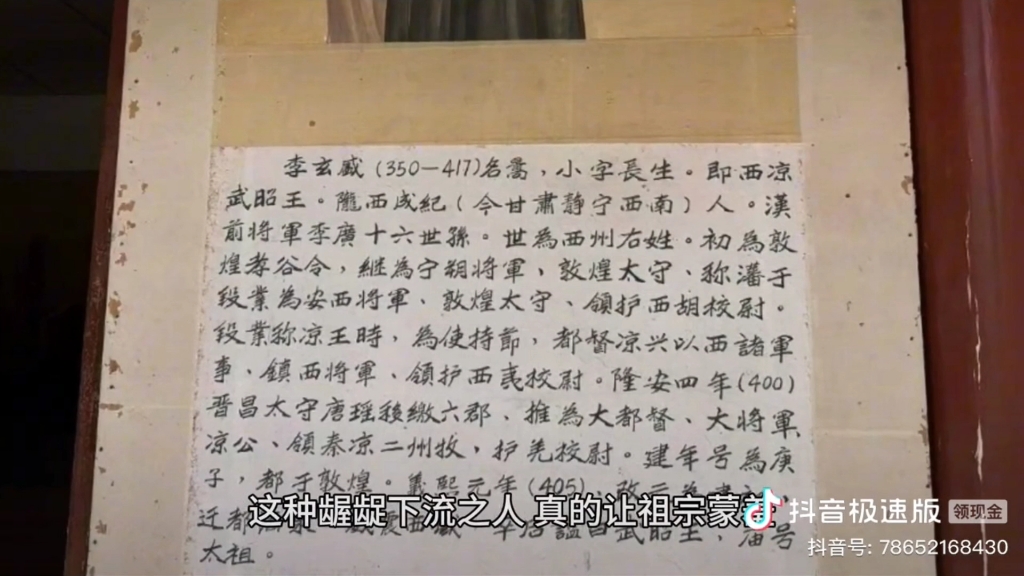 李玄盛(350—417)名暠,小字長生。即西凉
武昭王。隴西成紀(今甘肅靜宁西南)人。漢
前將軍李廣十六世孫。世為西州右姓。初為敦
煌孝谷令,継為宁朔將軍,敦煌太守、称藩于
段業為安西將軍、敦煌太守、領护西胡校尉。
段業称凉王時,為使持節,都督凉兴以西諸軍
事、鎮西將軍、領护西夷校尉。隆安四年(400)
晋昌太守唐瑶移繳六郡、推為大都督、大將軍
凉公、領秦凉二州牧,护羌校尉。建年号為庚
子,都于敦煌。義熙元年(405)
迁都 武昭王、庙号
太祖。
这种龌龊下流之人 真的让祖宗蒙羞
抖音极速版 领现金
抖音号: 78652168430